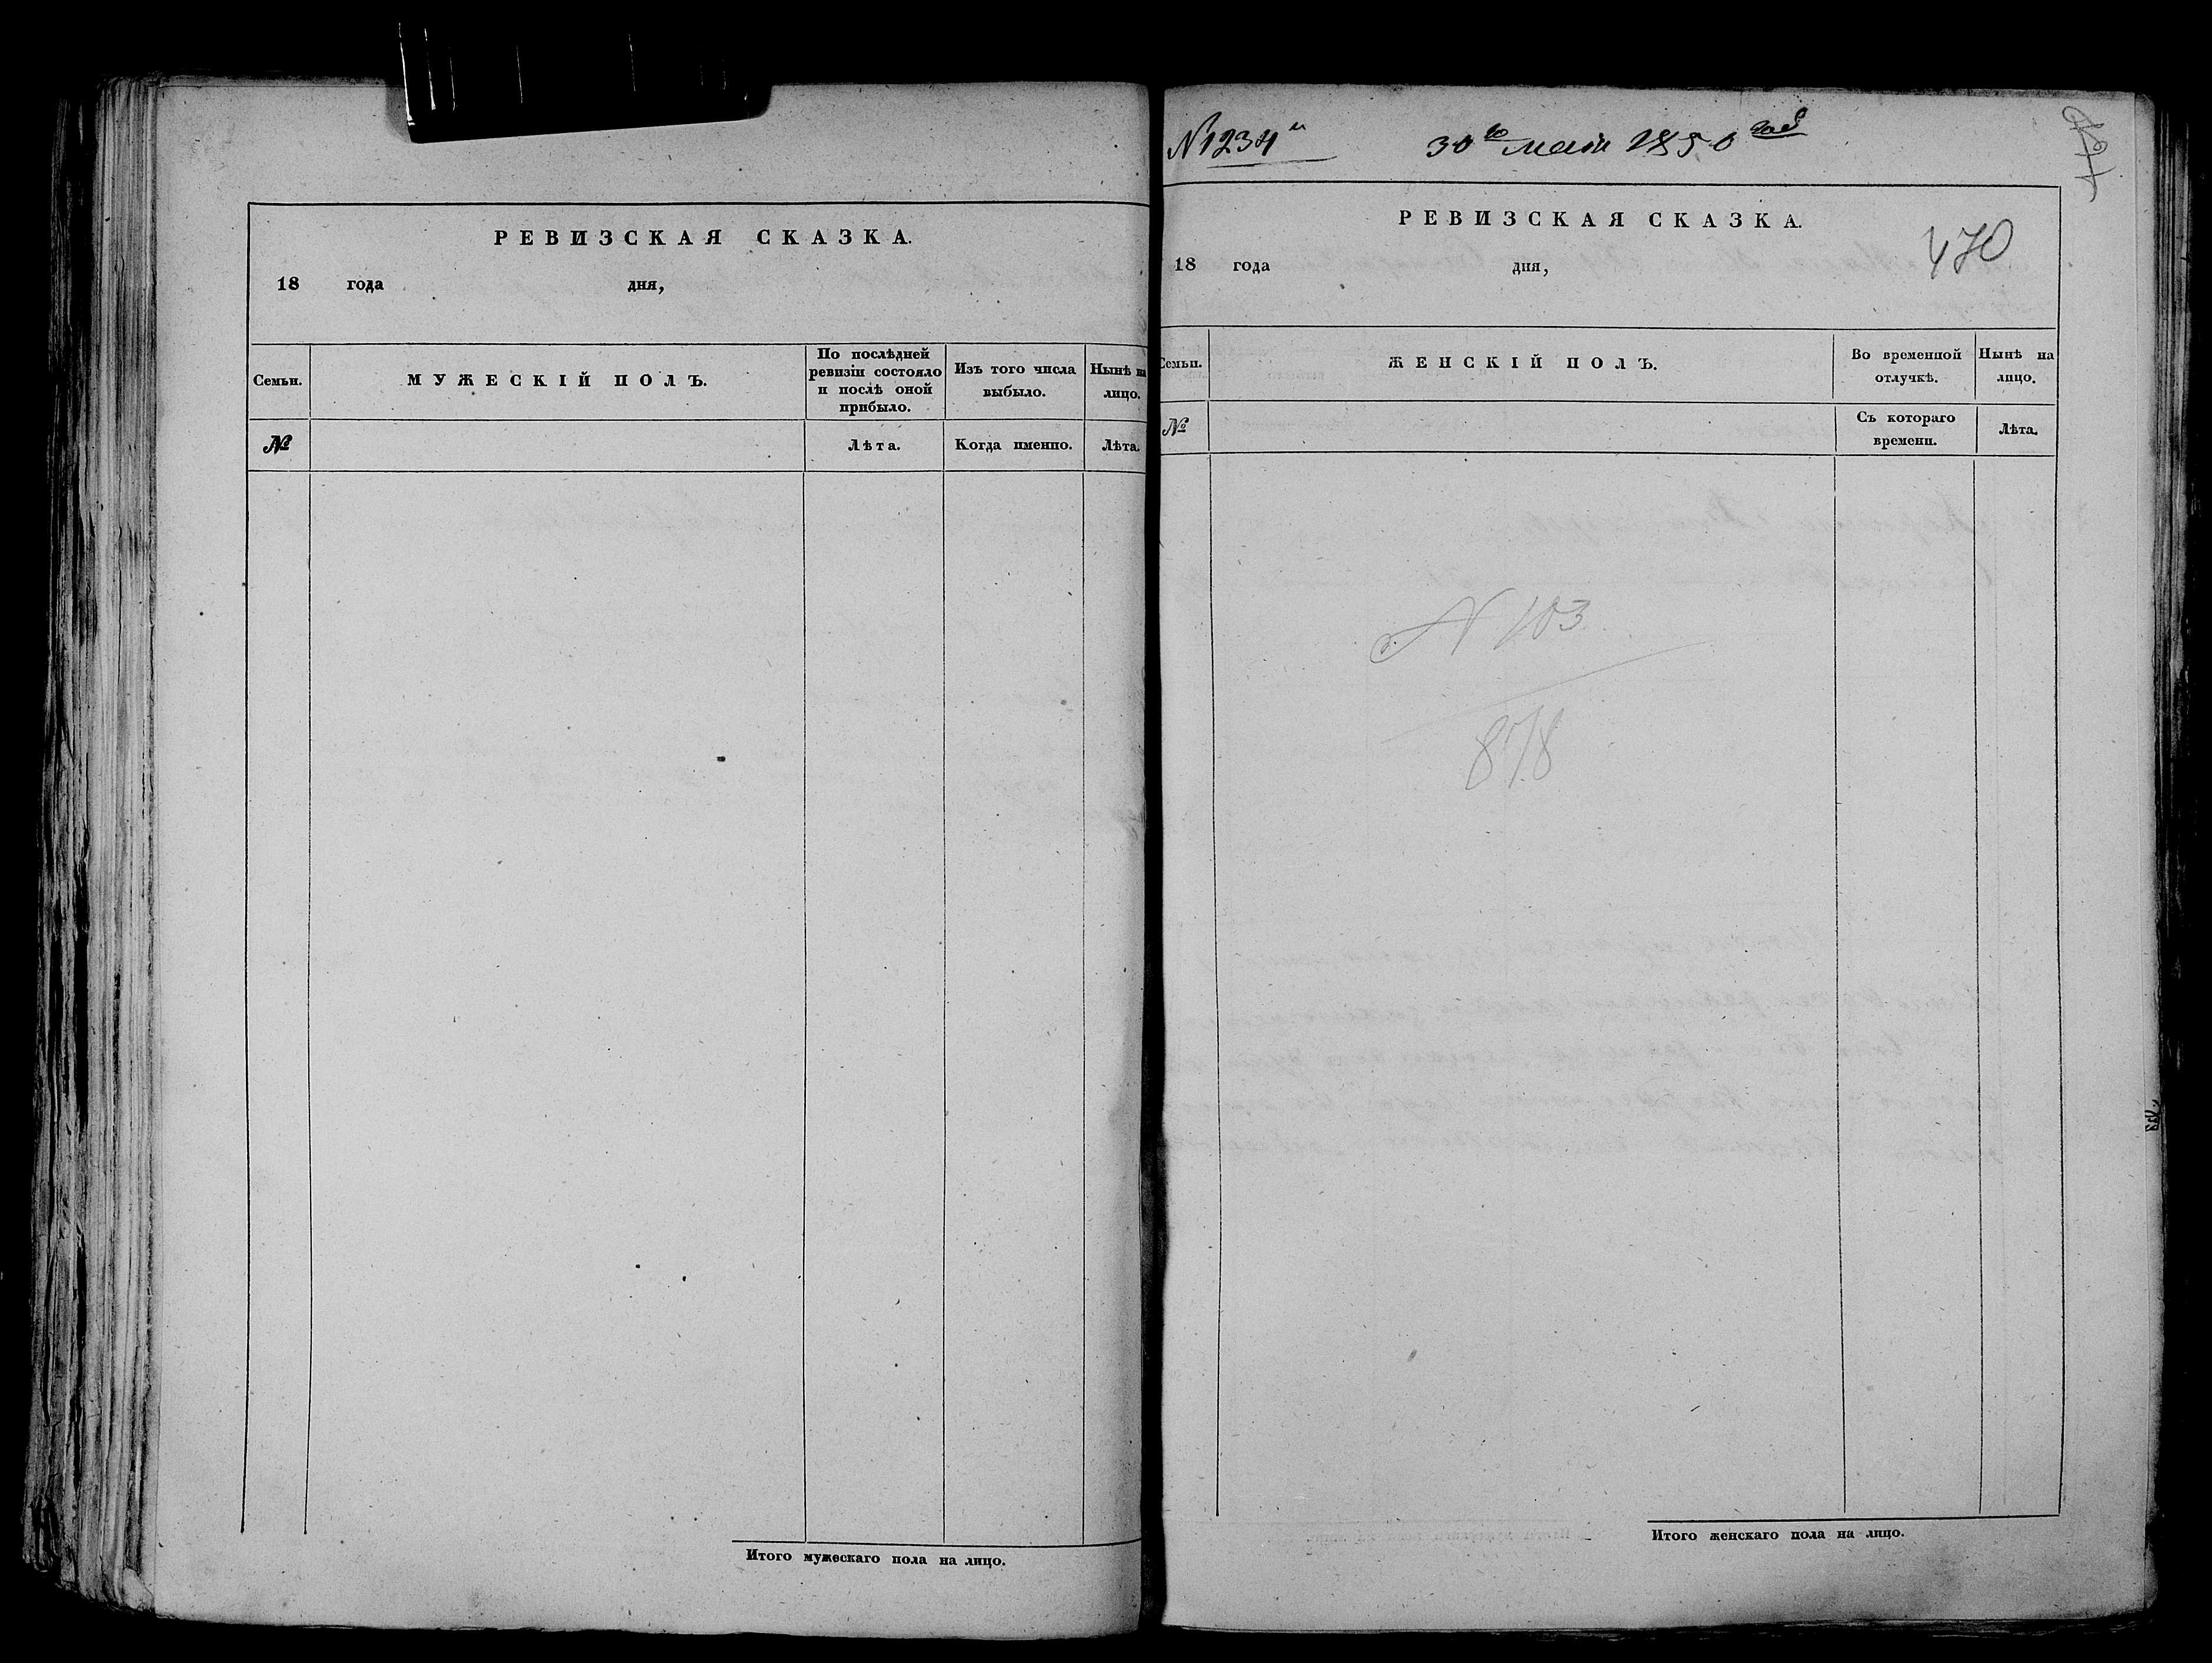 РЕВИЗСКАЯ СКАЗКА.
18 года дня,
Семьи.
МУЖЕСКІЙ ПОЛЪ.
По послѣдней
ревизіи состояло
и послѣ оной
прибыло.
Изъ того числа
выбыло.
Нынѣ на
лицо.
№
Лѣта.
Когда именно.
Лѣта.
Итого мужескаго пола на лицо.
№1234
30го маія 1850 год
РЕВИЗСКАЯ СКАЗКА.
470
18 года дня,
Семьи.
ЖЕНСКІЙ ПОЛЪ.
Во временной
отлучкѣ.
Нынѣ на
лицо.
№
Съ котораго
времени.
Лѣта.
N 103
878
Итого женскаго пола на лицо.